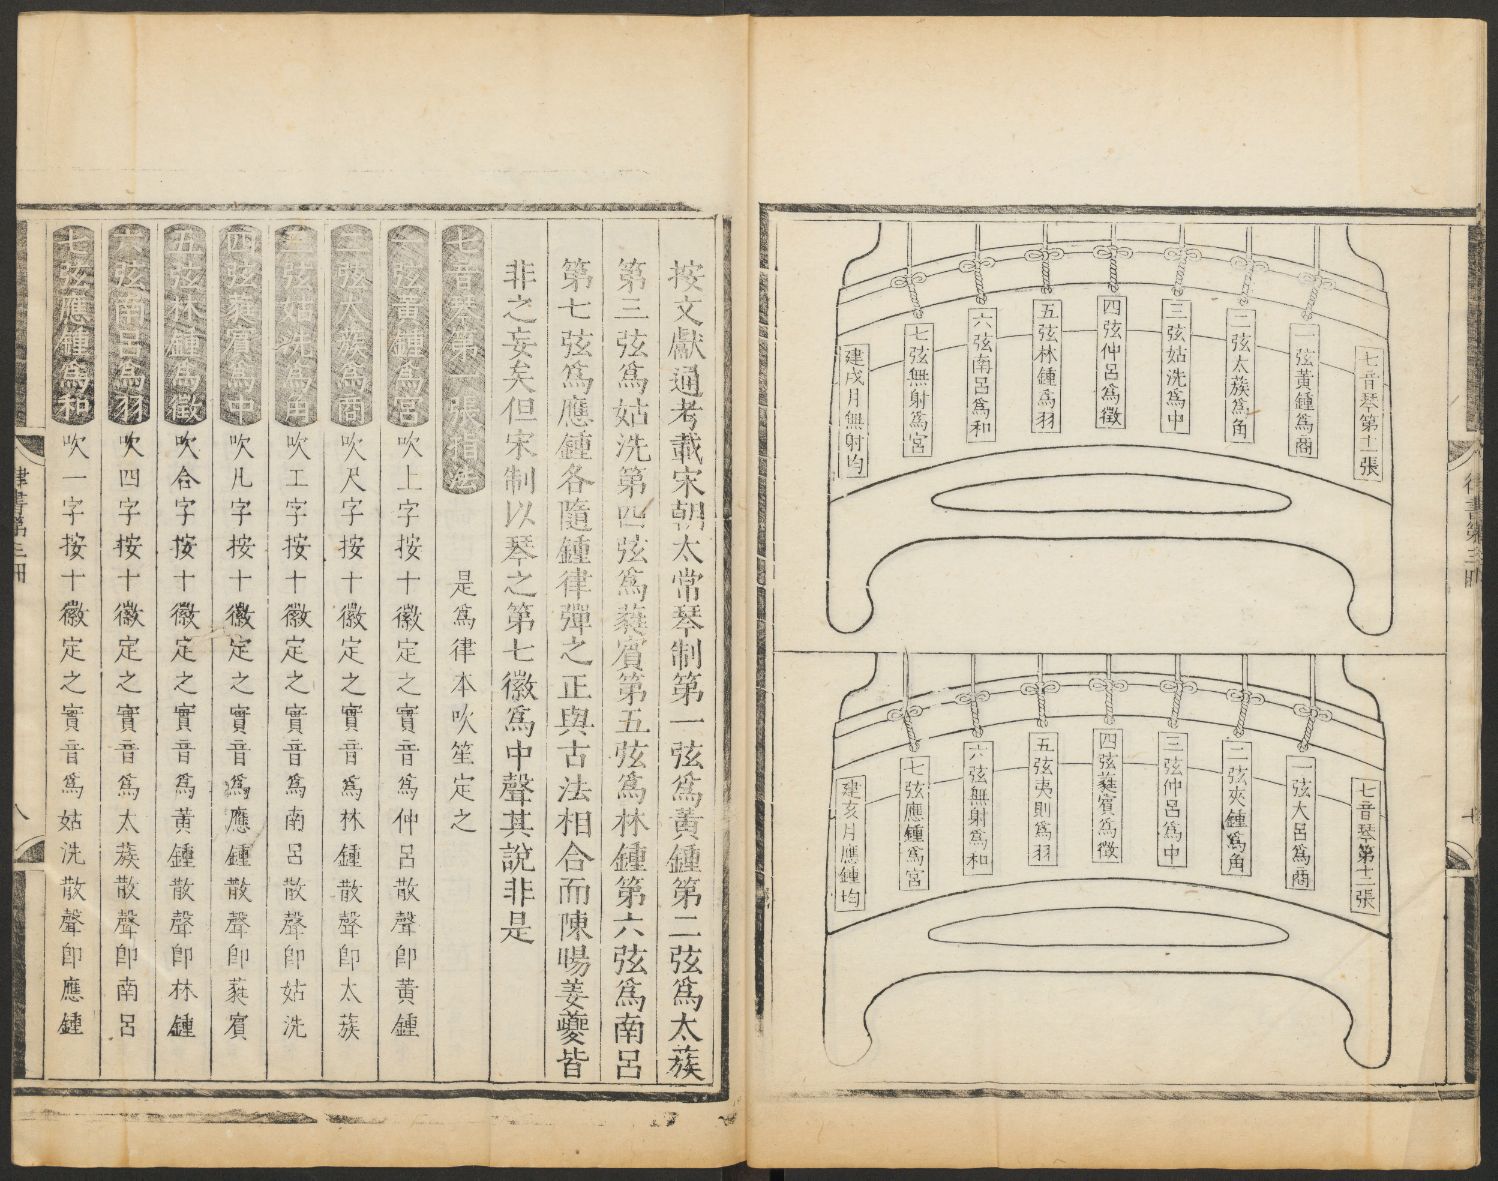 七音琴第十一張
一弦黃鍾爲商
二弦太蔟爲角
三弦姑洗爲中
四弦仲呂爲徵
五弦林鍾爲羽
六弦南呂爲和
七弦無射爲宮
建戌月無射均
七音琴第十二張
一弦大呂爲商
二弦夾鍾爲角
三弦仲呂爲中
四弦蕤賓爲徵
五弦夷則爲羽
六弦無射爲和
七弦應鍾爲宮
建亥月應鍾均
律書第三冊
按文獻通考載宋朝太常琴制第一弦爲黃鍾第二弦爲太蔟
第三弦爲姑洗第四弦爲蕤賓第五弦爲林鍾第六弦爲南呂
第七弦爲應鍾各隨鍾律彈之正與古法相合而陳暘姜夔皆
非之妄矣但宋制以琴之第七徽爲中聲其說非是
七音琴第一張指法 是爲律本吹笙定之
一弦黃鍾爲宮吹上字按十徽定之實音爲仲呂散聲卽黃鍾
二弦太蔟爲商吹尺字按十徽定之實音爲林鍾散聲卽太蔟
三弦姑洗爲角吹工字按十徽定之實音爲南呂散聲卽姑洗
四弦蕤賓爲中吹凡字按十徽定之實音爲應鍾散聲卽蕤賓
五弦林鍾爲徵吹合字按十徽定之實音爲黃鍾散聲卽林鍾
六弦南呂爲羽吹四字按十徽定之實音爲太蔟散聲卽南呂
七弦應鍾爲和吹一字按十徽定之實音爲姑洗散聲卽應鍾
律書第三冊
八